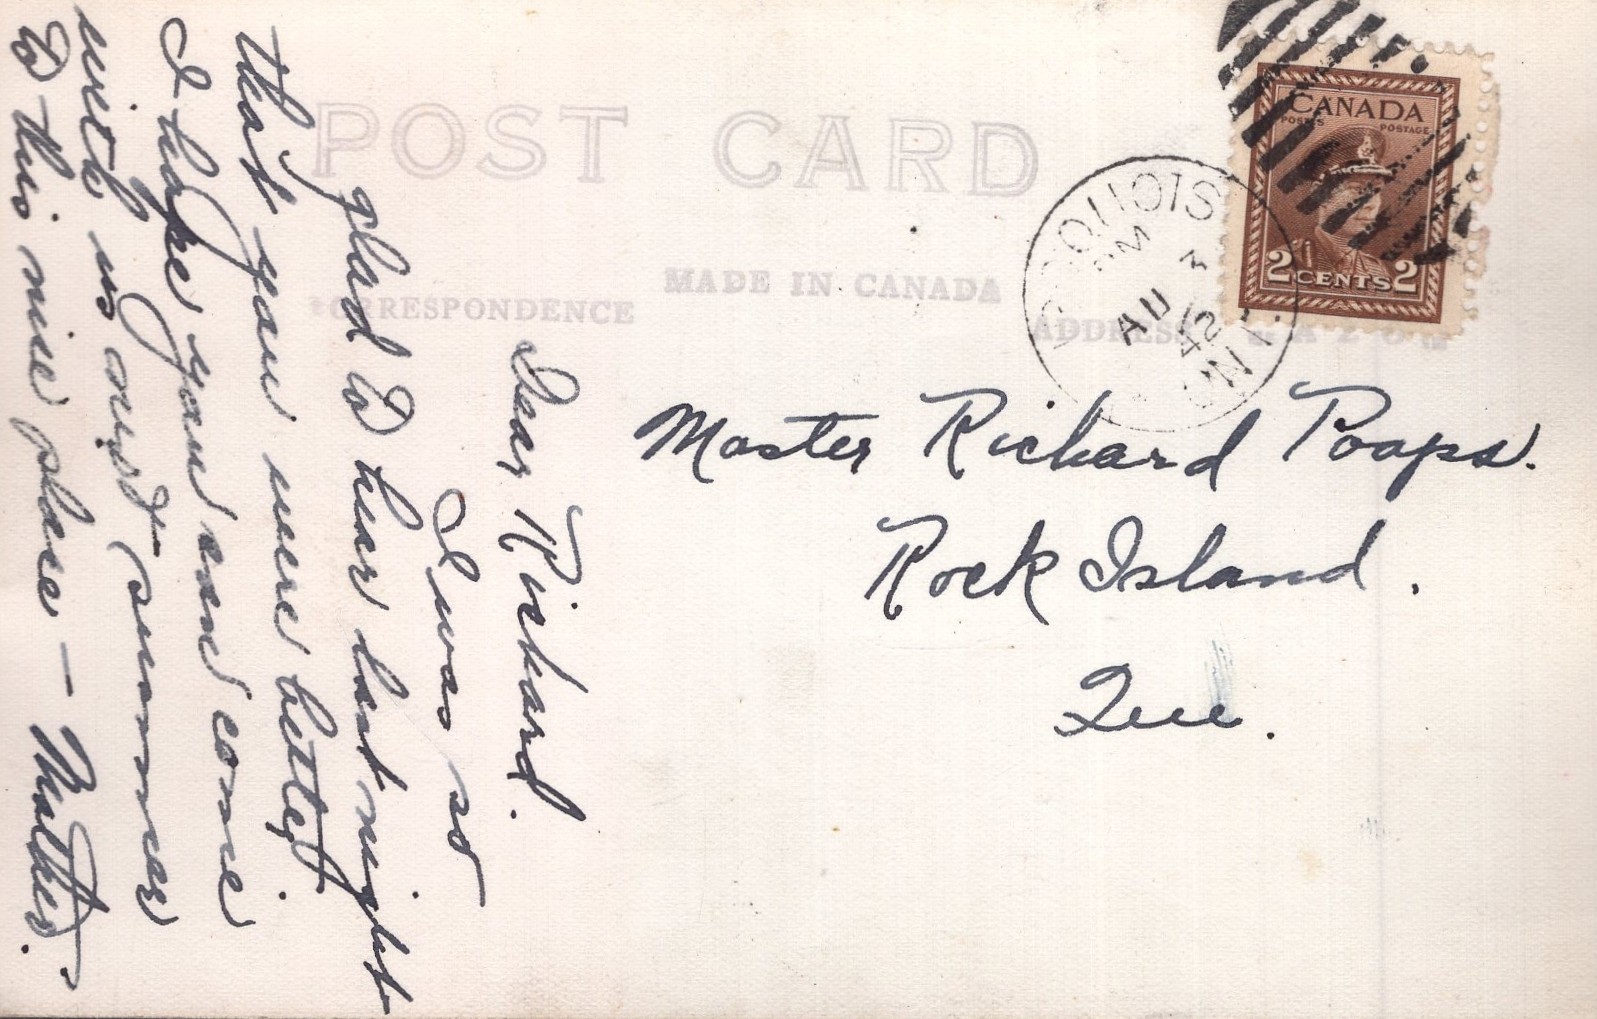 POST CARD
MADE IN CANADA
CORRESPONDENCE
ADDRESS
CANADA
POSTES POSTAGE
2 CENTS 2
IROQUOIS
PM
AU 3
42
ONT.
Dear Richard.
I was so
glad to hear last night
that you were better.
I hope you can come
with us next summer
to this nice place — Mother.
Master Richard Poaps.
Rock Island.
Que.